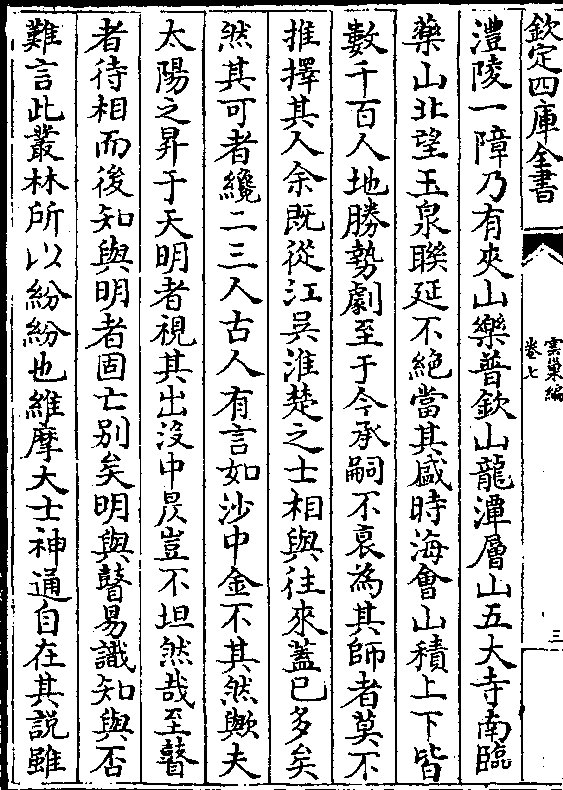 欽定四庫全書
雲巢編
卷七
三
澧陵一障乃有夾山樂普欽山龍潭層山五大寺南臨
藥山北望玉泉聯延不絶當其盛時海會山積上下皆
數千百人地勝勢劇至于今承嗣不衰為其師者莫不
推擇其人余既從江吴淮楚之士相與往來蓋已多矣
然其可者纔二三人古人有言如沙中金不其然歟夫
太陽之昇于天明者視其出没中昃豈不坦然哉至瞽
者待相而後知與明者固亡别矣明與瞽易識知與否
難言此叢林所以紛紛也維摩大士神通自在其説雖